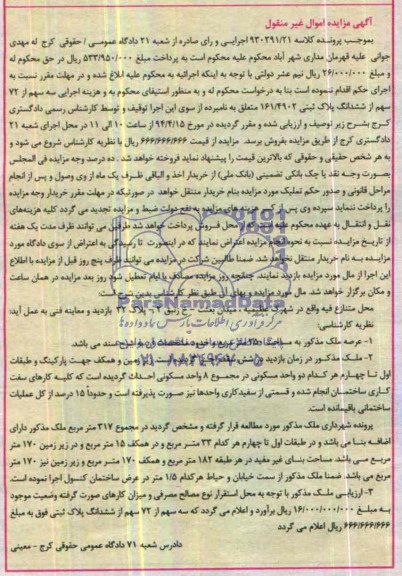 آگهی مزایده اموال غیر منقول
بموجب پرونده کلاسه ۹۳۰۲۹۱/۲۱ اجرایی و رای صادره از شعبه ۲۱ دادگاه عمومی / حقوقی کرج له مهدی
جوانی علیه قهرمان مداری شهر آباد محکوم علیه محکوم است به پرداخت مبلغ ۵۳۳/۹۵۰/۰۰۰ ریال در حق محکوم له
و مبلغ ۲۶/۰۰۰/۰۰۰ ریال نیم عشر دولتی با توجه به اینکه اجرائیه به محکوم علیه ابلاغ شده و در مهلت مقرر نسبت به
اجرای حکم اقدام ننموده است بنا به درخواست محکوم له و به منظور استیفای محکوم به و هزینه اجرایی سه سهم از ۷۲
سهم از ششدانگ پلاک ثبتی ۱۶۱/۴۹۰۲ متعلق به نامبرده از سوی این اجرا توقیف و توسط کارشناس رسمی دادگستری
کرج بشرح زیر توصیف و ارزیابی شده و مقرر گردیده در مورخ ۹۴/۴/۱۵ از ساعت ۱۰ الی ۱۱ در محل اجرای شعبه ۲۱
دادگستری کرج از طریق مزایده بفروش برسد. مزایده از قیمت ۶۶۶/۶۶۶/۶۶۶ ریال با نظریه کارشناس شروع می شود و
به هر شخص حقیقی و حقوقی که بالاترین قیمت را پیشنهاد نماید فروخته خواهد شد. ده درصد وجه مزایده فی المجلس
بصورت وجه نقد یا چک بانکی تضمینی (بانک ملی) از خریدار اخذ و الباقی ظرف یک ماه از وی وصول و پس از انجام
مراحل قانونی و صدور حکم تملیک مورد مزایده بنام خریدار منتقل خواهد. در صورتیکه در مهلت مقرر خریدار وجه مزایده
را پرداخت ننماید سپرده وی پس از کسر هزینه های مزایده به نفع دولت ضبط و مزایده تجدید می گردد کلیه هزینه‌های
نقل و انتقال به عهده محکوم علیه محل فروش پرداخت خواهد شد طرفین می توانند ظرف مدت یک هفته
از تاریخ مزایده نسبت به نحوه مزایده اعتراض نمایند که در اینصورت تا رسیدگی به اعتراض از سوی دادگاه مورد
مزایده به نام خریدار منتقل نخواهد شد. ضمنا طالبین شرکت در مزایده می توانند ظرف پنج روز قبل از مزایده با اطلاع
این اجرا از مال مورد مزایده بازدید نمایند. چنانچه روز مزایده مصادف با ایام تعطیل شود روز بعد مزایده در همان ساعت
و مکان برگزار خواهد شد. مال مورد مزایده و بهای آن طبق نظر کارشناس بدین شرح است:
محل متنازع فیه واقع در شهرک عظیمیه، میدان بعثت پلاک ۳۲ بازدید و معاینه فنی به عمل آید:
نظریه کارشناسی:
۱- عرصه ملک مذکور به مساحت ۲۵۰ متر مربع و حدود مشخصات سند می باشد.
۲- ملک مذکور در زمان بازدید زمین و همکف جهت پارکینگ و طبقات
اول تا چهارم هر کدام دو واحد مسکونی در مجموع ۸ واحد مسکونی احداث گردیده است که کلیه کارهای سفت
کاری ساختمان انجام شده و قسمتی از سفیدکاری واحدها نیز صورت پذیرفته است و حدوداً ۱۵ درصد از کل عملیات
ساختمانی باقیمانده است.
پرونده شهرداری ملک مذکور مورد مطالعه قرار گرفته و مشخص گردید در مجموع ۳۱۷ متر مربع ملک مذکور دارای
اضافه بنا می باشد و در طبقات اول تا چهارم هر کدام ۳۳ متر مربع و در همکف ۱۵ متر مربع و در زیر زمین ۱۷۰ متر
مربع می باشد. مساحت بنای غیر مفید در هر طبقه ۱۸۲ متر مربع و همکف ۱۷۰ متر مربع و زیر زمین نیز ۱۷۰ متر
مربع می باشد. ضمنا ملک مذکور از سمت خیابان و حیاط هر کدام ۱/۵ متر در عرض ساختمان کنسول اجرا نموده است.
۳- ارزیابی ملک مذکور با توجه به محل استقرار نوع مصالح مصرفی و میزان کارهای صورت گرفته وضعیت موجود
به مبلغ ۱۶/۰۰۰/۰۰۰/۰۰۰ ریال برآورد و اعلام می گردد که سه سهم از ۷۲ سهم از ششدانگ پلاک ثبتی فوق به مبلغ
۶۶۶/۶۶۶/۶۶۶ ریال اعلام می گردد
دادرس شعبه ۷۱ دادگاه عمومی حقوقی کرج - معینی
ParsNamadData
مرکز فرآوری اطلاعات پارس نماد داده ها
۰۲۱-۸۸۳۴۹۶۷۰-۵